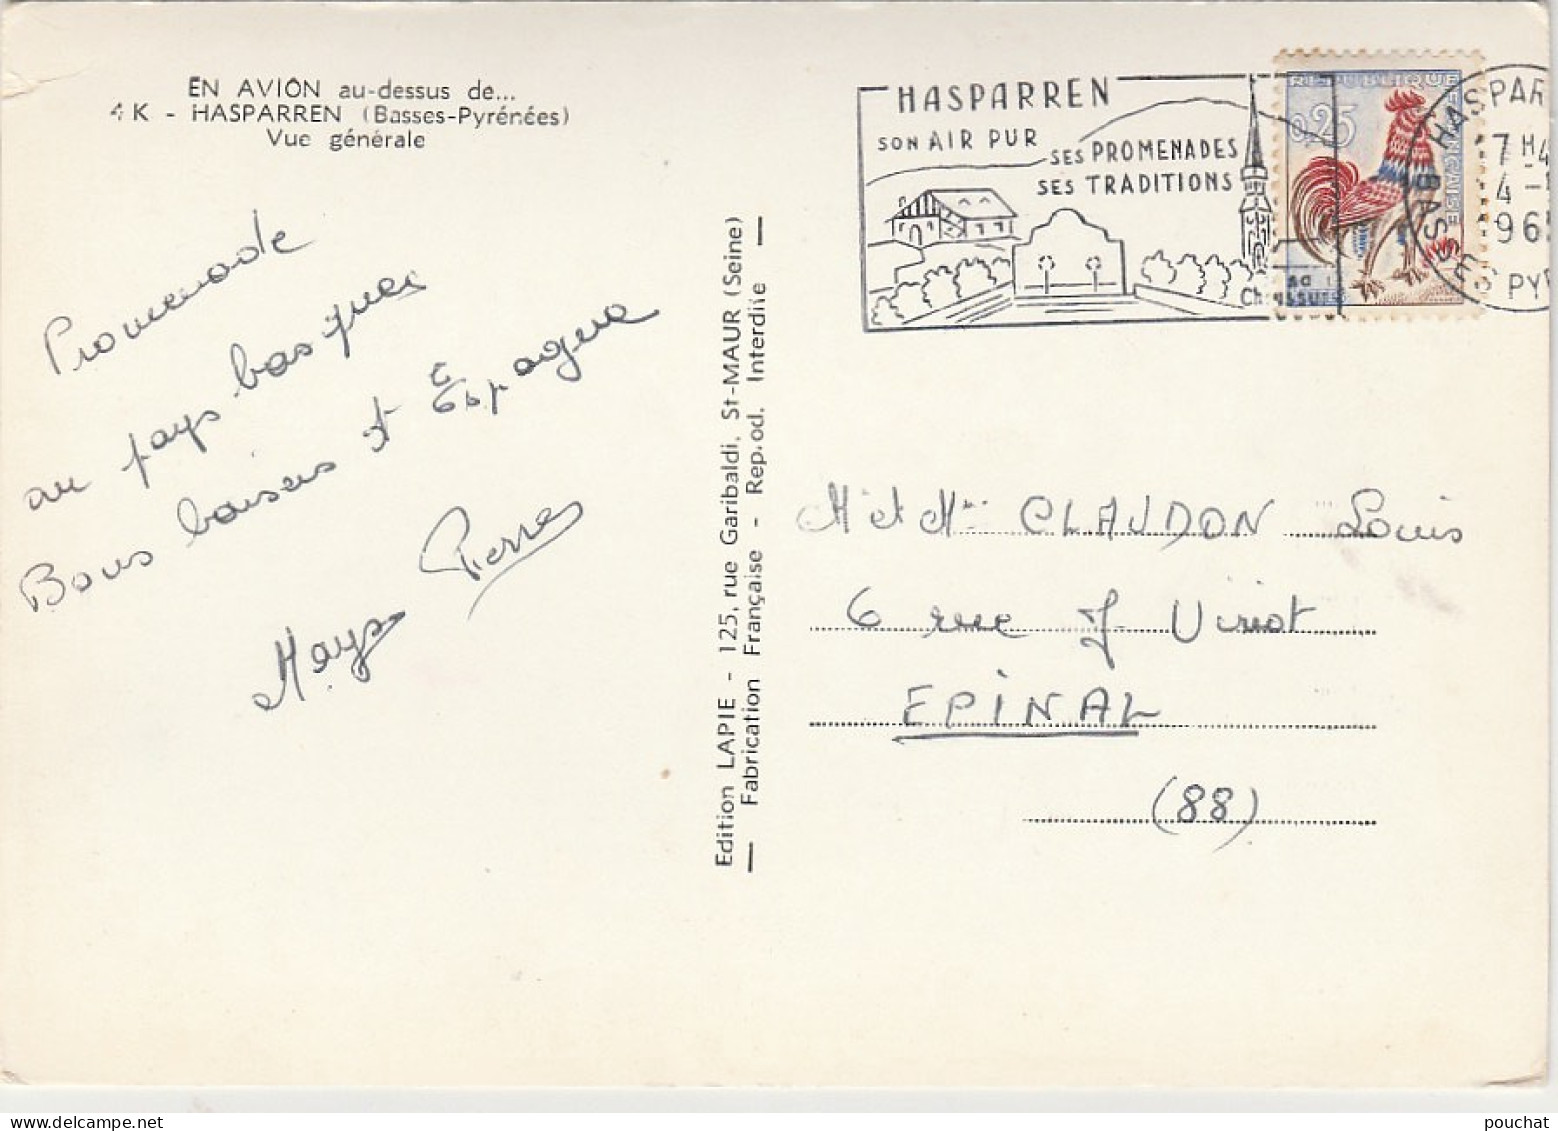 EN AVION au-dessus de...
4 K - HASPARREN (Basses-Pyrénées)
Vue générale
Promenade
au pays basque
Bons baisers d'Espagne
Pierre
Edition LAPIE - 125, rue Garibaldi, St-MAUR (Seine)
Fabrication Française - Reprod. Interdite
HASPARREN
SON AIR PUR
SES PROMENADES
SES TRADITIONS
REPUBLIQUE FRANÇAISE
0,25
HASPAR
7 H
4 -
96
BASSES PY
M et Mme CLAUDON Louis
6 rue J Viriot
EPINAL
(88)
pouchat